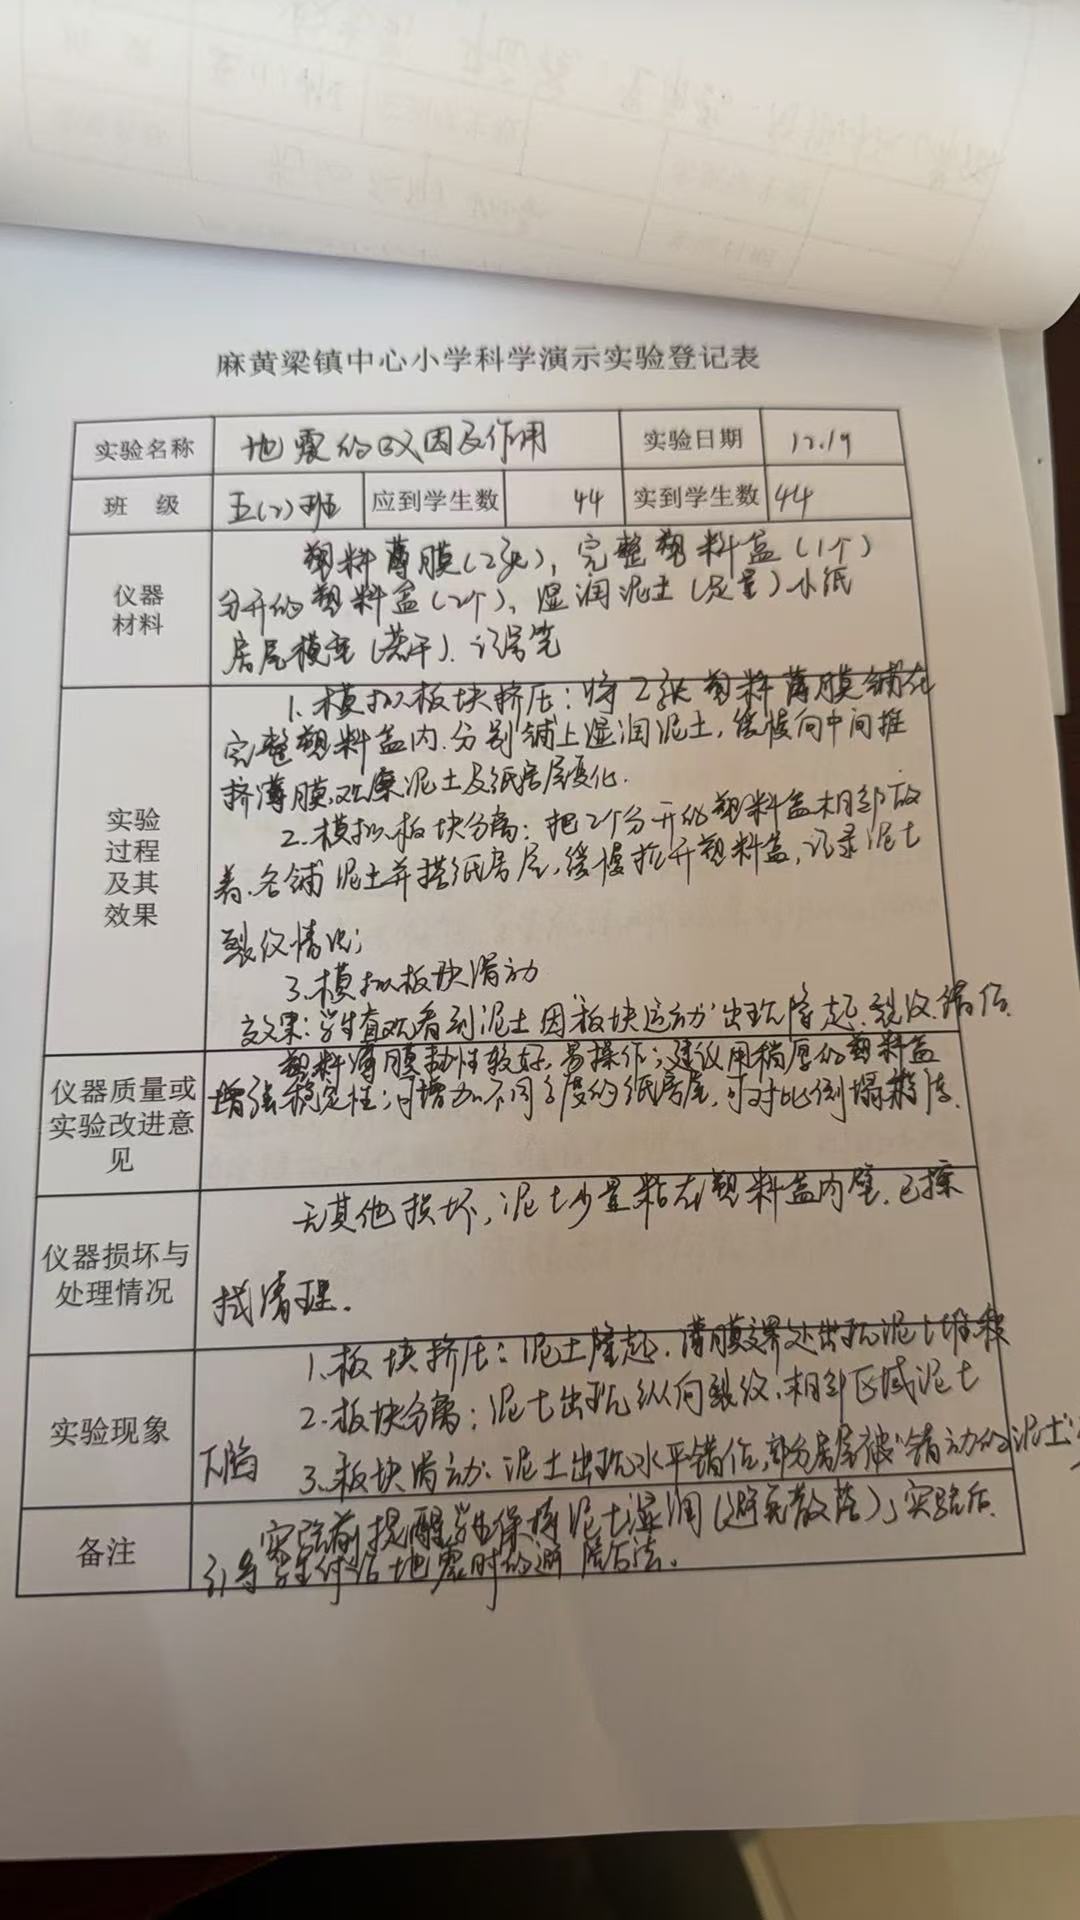 麻黄梁镇中心小学科学演示实验登记表
实验名称 地震的成因及作用 实验日期 12.19
班 级 五(2)班 应到学生数 44 实到学生数 44
仪器材料
塑料薄膜(2张)，完整塑料盒(1个)
分开的塑料盒(2个)、湿润泥土(足量)小纸
房屋模型(若干)、记号笔
实验过程及其效果
1.模拟板块挤压：将2张塑料薄膜铺在
完整塑料盒内.分别铺上湿润泥土，缓慢向中间推
挤薄膜,观察泥土及纸房屋变化.
2.模拟板块分离：把2个分开的塑料盒相邻放
着.各铺泥土并搭纸房屋,缓慢拉开塑料盒,记录泥土
裂纹情况；
3.模拟板块滑动
效果：学生直观看到泥土因"板块运动"出现隆起.裂纹.错位.
仪器质量或实验改进意见
塑料薄膜韧性较好,易操作；建议用稍厚的塑料盒
增强稳定性；可增加不同高度的纸房屋,可对比倒塌情况.
仪器损坏与处理情况
无其他损坏，泥土少量粘在塑料盒内壁.已擦
拭清理.
实验现象
1.板块挤压：泥土隆起.薄膜交界处出现泥土堆积
2.板块分离：泥土出现纵向裂纹.相邻区域泥土
下陷
3.板块滑动：泥土出现水平错位,部分房屋被"错动的泥土
备注
实验前提醒学生保持泥土湿润(避免散落)，实验后
引导学生讨论地震时的避险方法。